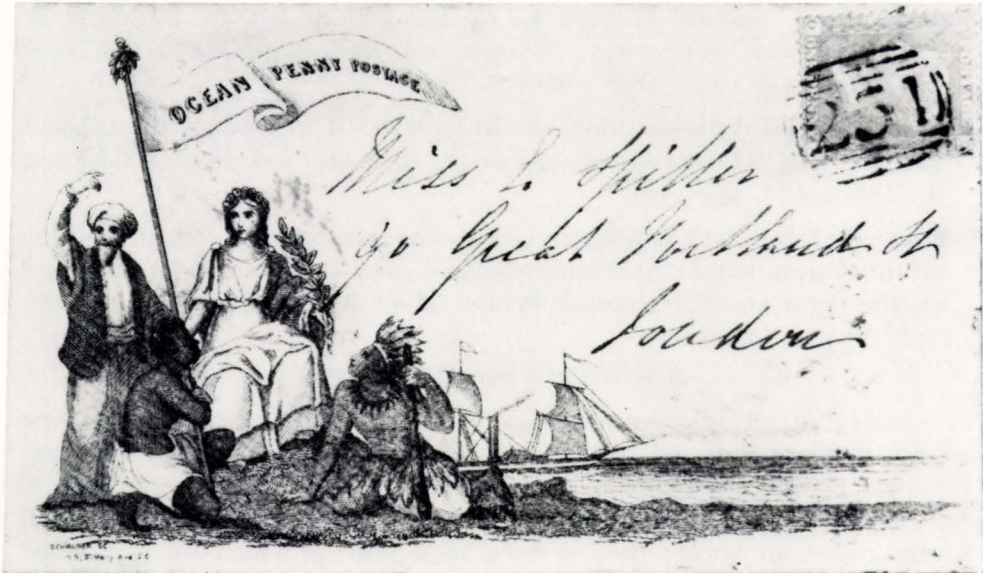 OCEAN PENNY POSTAGE
251
Miss L. Spiller
90 Great Portland St
London